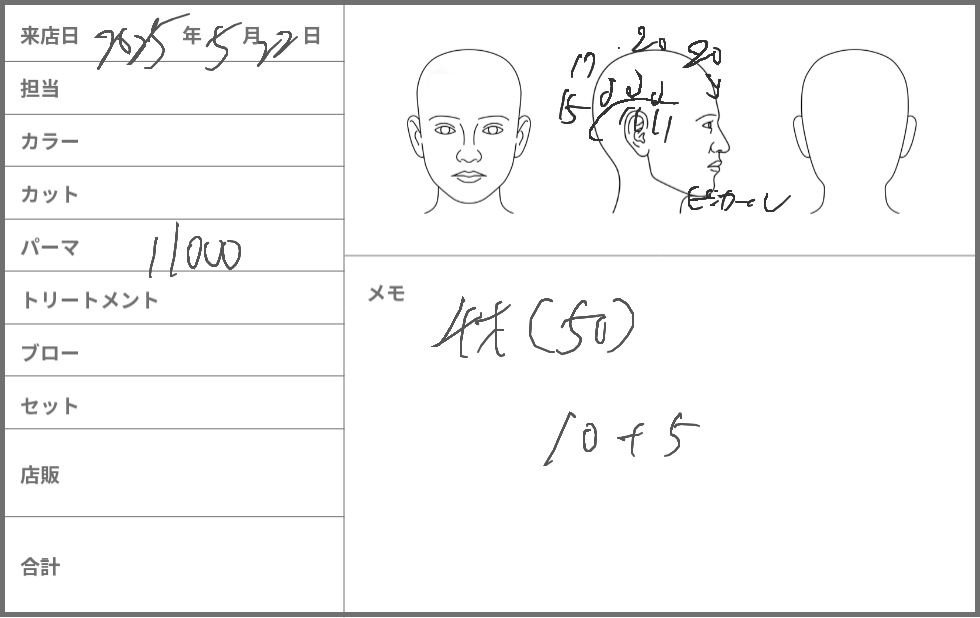 来店日 2025年5月22日
担当
カラー
カット
パーマ 11000
トリートメント
ブロー
セット
店販
合計
20
20
17
15
メモ
(50)
10+5